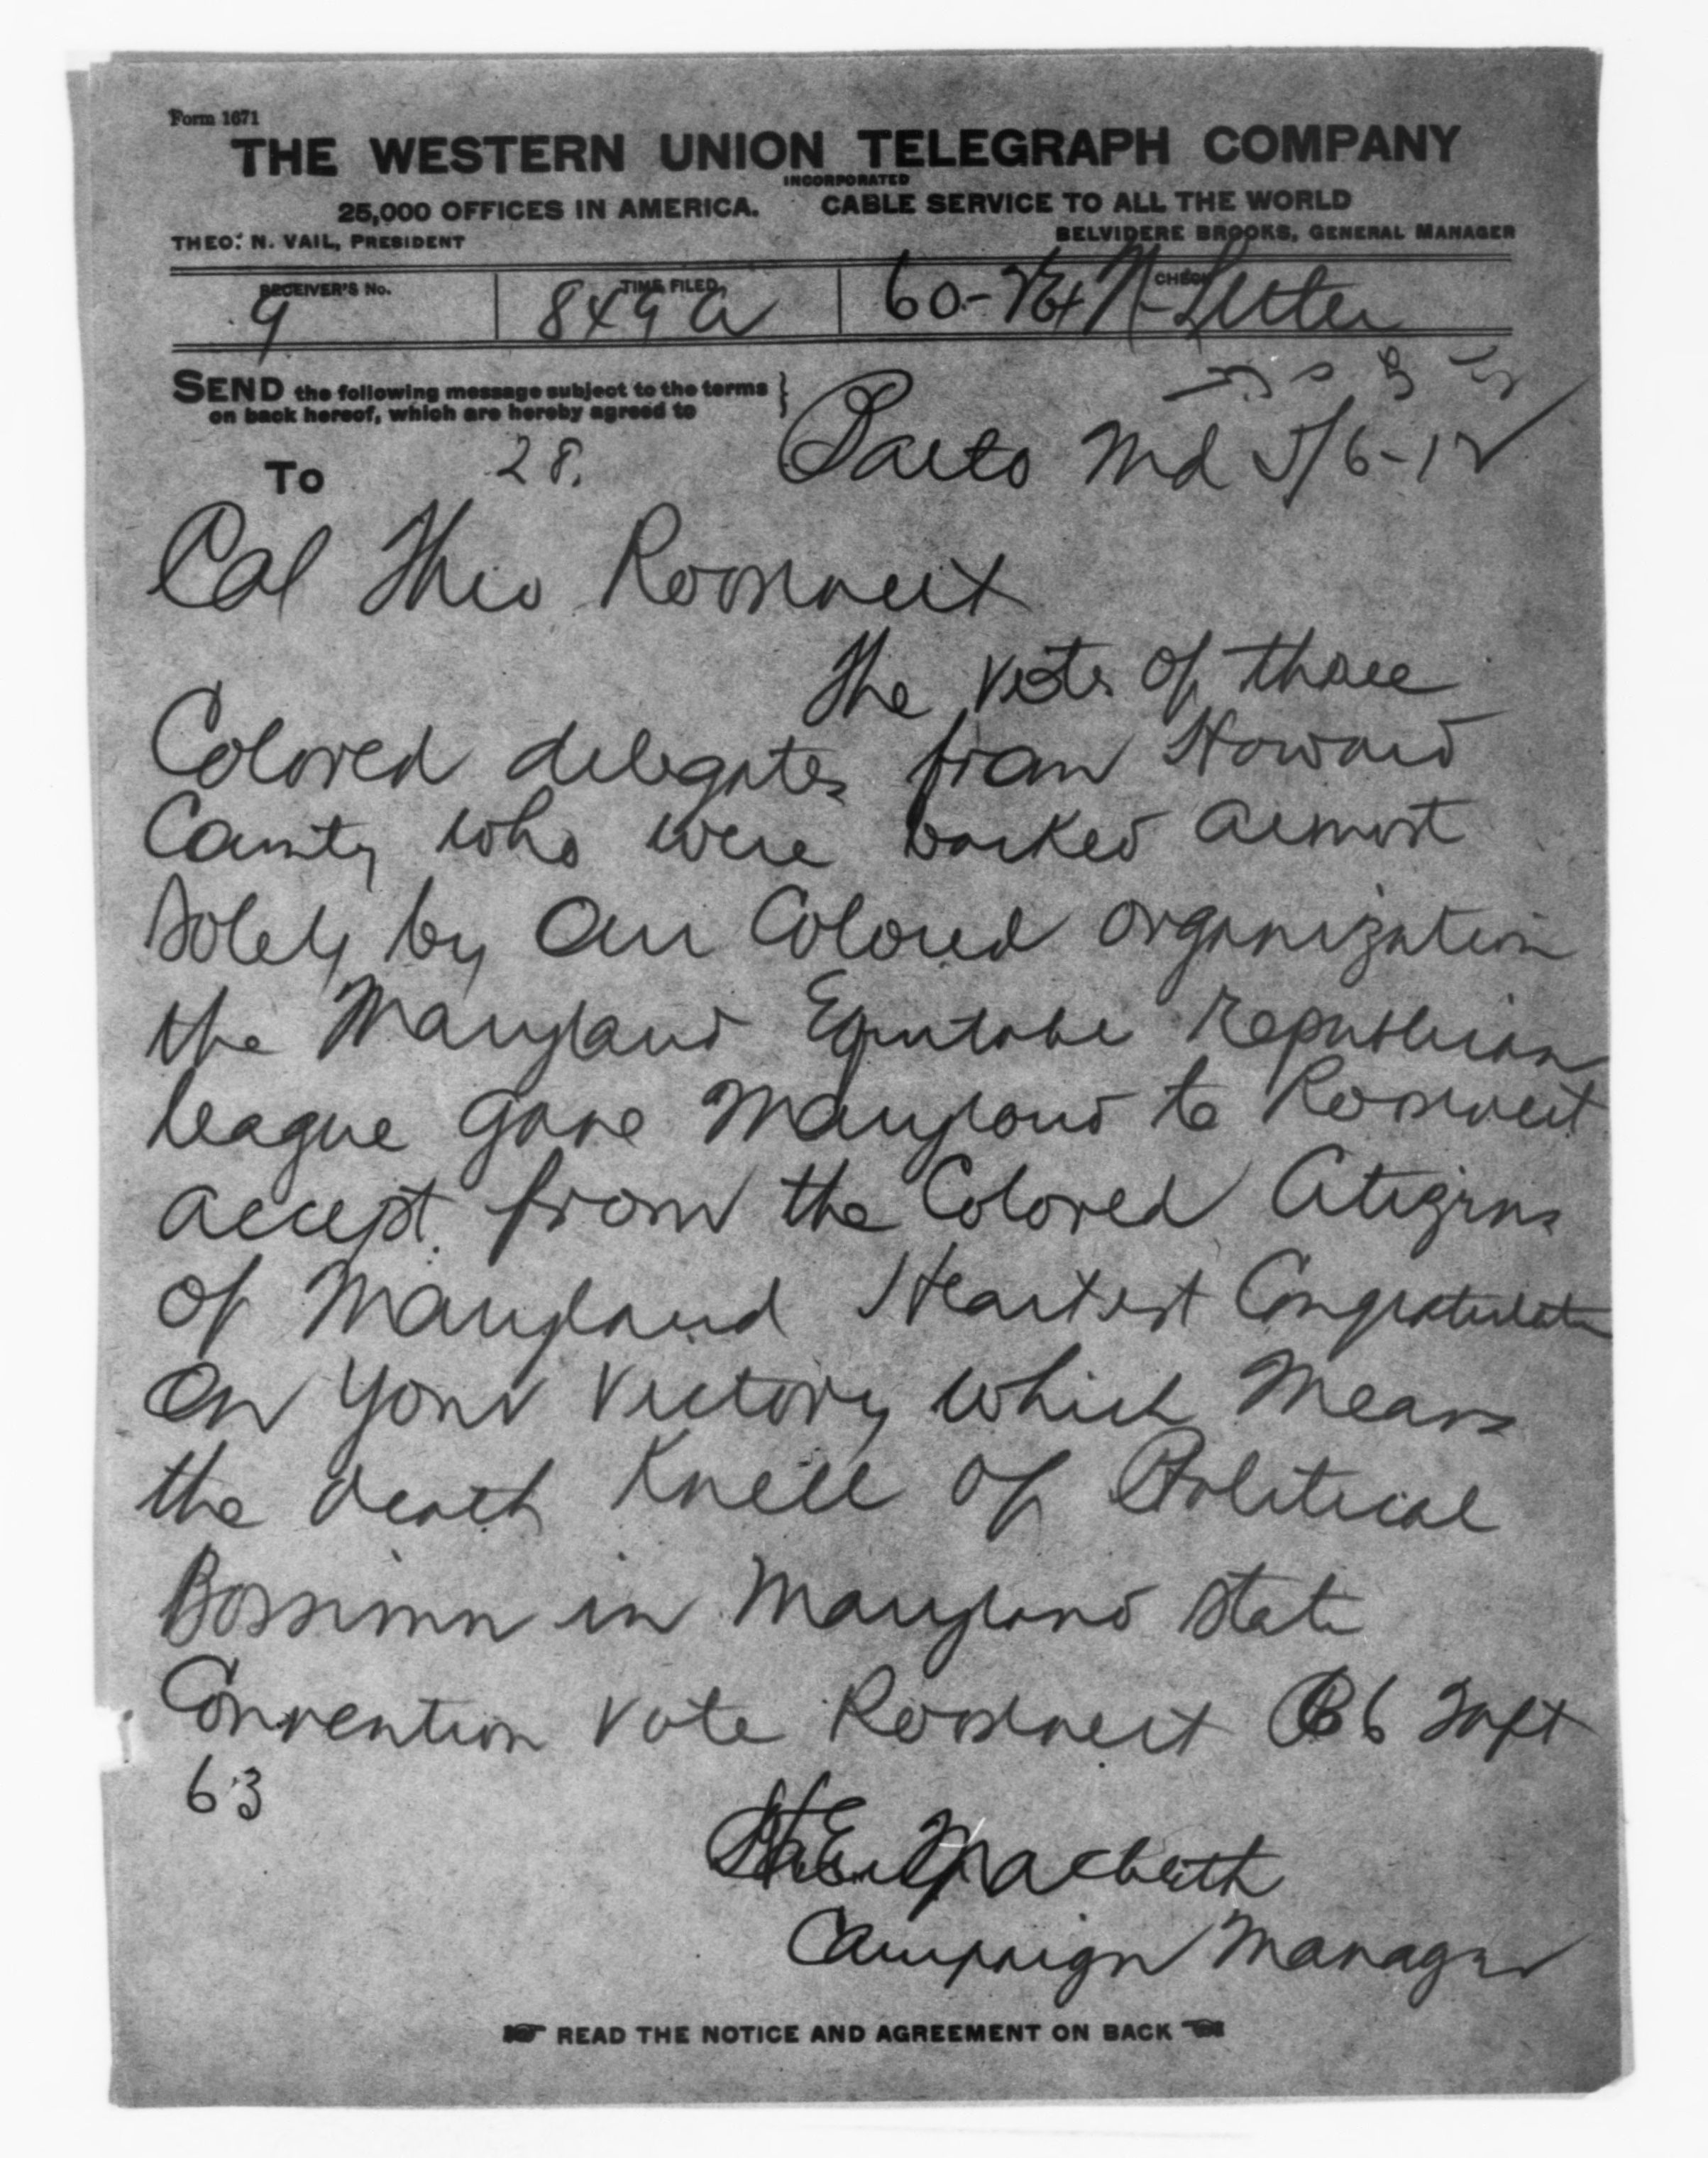 Form 1671
THE WESTERN UNION TELEGRAPH COMPANY
INCORPORATED
25,000 OFFICES IN AMERICA. CABLE SERVICE TO ALL THE WORLD
THEO. N. VAIL, PRESIDENT BELVIDERE BROOKS, GENERAL MANAGER
RECEIVER'S No. TIME FILED CHECK
9 849 a 60- N-Letter
SEND the following message subject to the terms
on back hereof, which are hereby agreed to
28. Balto Md 5/6-12
To
Col Theo Roosevelt
The votes of three
Colored delegates from Howard
County who were worked almost
solely by our Colored organization
the Maryland Equitable Republican
league gave Maryland to Roosevelt
accept from the Colored Citizens
of Maryland Heartest Congratulation
on your victory which means
the death Knell of Political
Bossism in Maryland State
Convention vote Roosevelt 66 Taft
63
Macbeth
Campaign Manager
READ THE NOTICE AND AGREEMENT ON BACK